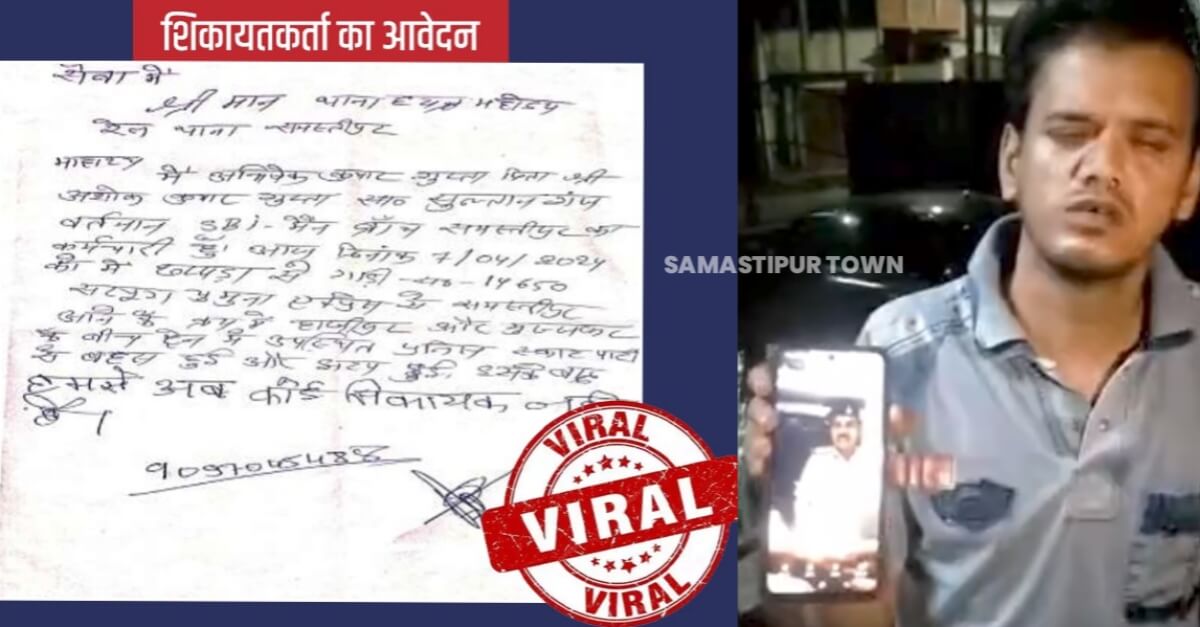 शिकायतकर्ता का आवेदन
सेवा में
श्री मान थानाध्यक्ष महोदय
रेल थाना समस्तीपुर
महाशय
में अभिषेक कुमार गुप्ता पिता श्री
अशोक कुमार गुप्ता सा० सुल्तान गंज
वर्तमान SBI-मैन ब्रॉच समस्तीपुर का
कर्मचारी हूँ। आज दिनांक 7/04/2024
को में छपड़ा से गाड़ी सं०-14650
सरयू यमुना एक्सप्रेस के समस्तीपुर
आने के क्रम में हाजीपुर और मुजफ्फर
के बीच ट्रेन में उपस्थित पुलिस स्कॉट पार्टी
से बहस हुई और झड़प हुई।
हमसे अब कोई सिकायक
है।
VIRAL
VIRAL
VIRAL
SAMASTIPUR TOWN